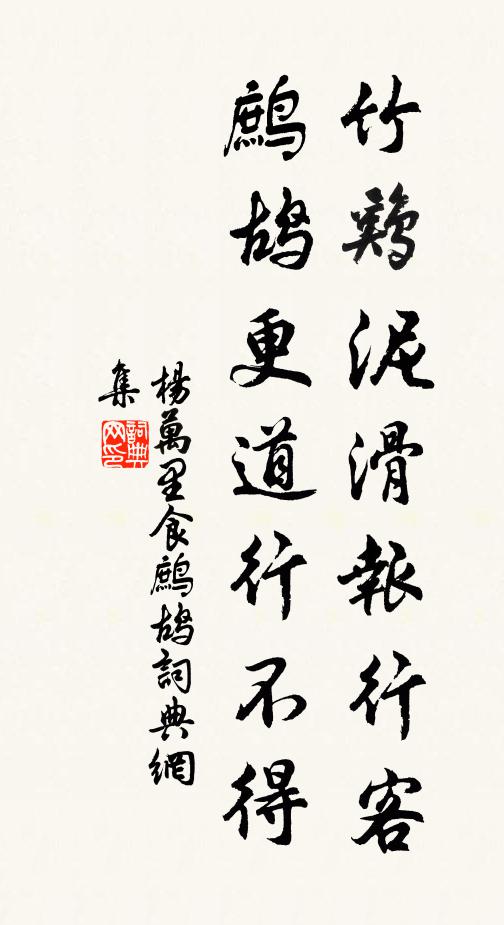 竹鷄泥滑報行客
鷓鴣更道行不得
楊萬里食鷓鴣詞典網
集
詞典
网印